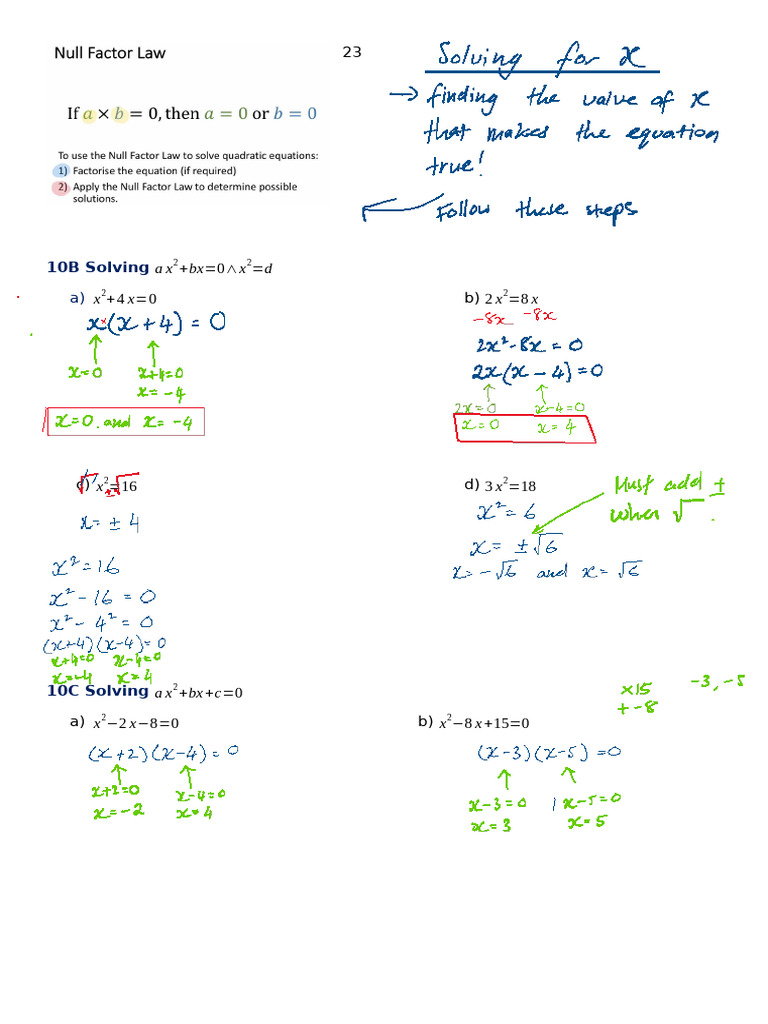 Null Factor Law
23
If a × b = 0, then a = 0 or b = 0
To use the Null Factor Law to solve quadratic equations:
1) Factorise the equation (if required)
2) Apply the Null Factor Law to determine possible
solutions.
Solving for x
→ finding the value of x
that makes the equation
true!
Follow these steps
10B Solving a x²+bx=0∧x²=d
a) x²+4x=0
x×(x+4) = 0
x=0 x+4=0
x= -4
x=0 and x= -4
b) 2x²=8x
-8x -8x
2x²-8x = 0
2x(x-4)=0
2x=0 x-4=0
x=0 x= 4
c) √x²=±√16
x= ± 4
x²=16
x²-16 = 0
x²- 4² = 0
(x+4)(x-4)=0
x+4=0 x-4=0
x=-4 x=4
d) 3x²=18
x²= 6
x= ±√6
x= -√6 and x= √6
Must add ±
when √ .
10C Solving a x²+bx+c=0
a) x²−2x−8=0
(x+2)(x-4)= 0
x+2=0 x-4=0
x=-2 x=4
×15 -3, -5
+ -8
b) x²−8x+15=0
(x-3)(x-5) =0
x-3=0 x-5=0
x=3 x=5